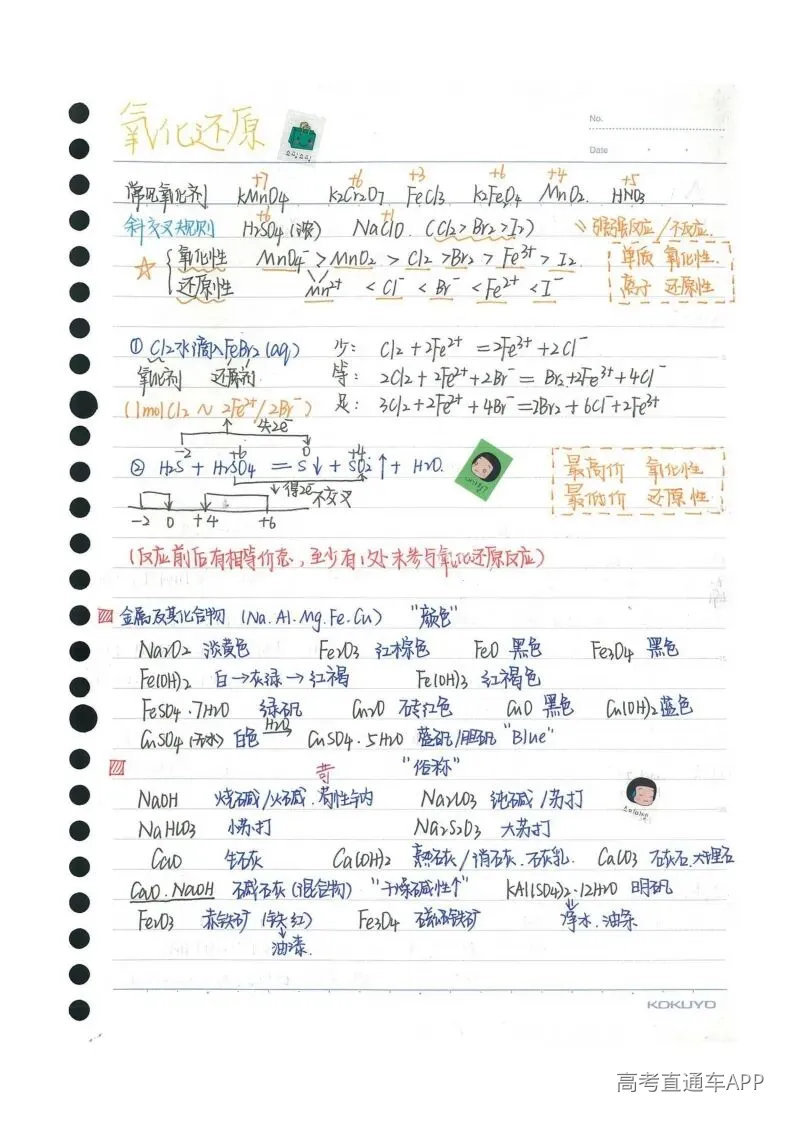 氧化还原
No.
Date
+7 +6 +3 +6 +4 +5
常见氧化剂 KMnO4 K2Cr2O7 FeCl3 K2FeO4 MnO2 HNO3
+6 +1
斜交叉规则 H2SO4(浓) NaClO (Cl2>Br2>I2) 强强反应/不反应
☆ 氧化性 MnO4⁻ > MnO2 > Cl2 > Br2 > Fe³⁺ > I2 单质 氧化性
还原性 Mn²⁺ < Cl⁻ < Br⁻ < Fe²⁺ < I⁻ 离子 还原性
① Cl2水滴入FeBr2(aq) 少: Cl2+2Fe²⁺=2Fe³⁺+2Cl⁻
氧化剂 还原剂 等: 2Cl2+2Fe²⁺+2Br⁻=Br2+2Fe³⁺+4Cl⁻
(1molCl2 ~ 2Fe²⁺/2Br⁻) 足: 3Cl2+2Fe²⁺+4Br⁻=2Br2+6Cl⁻+2Fe³⁺
失2e⁻
-2 +6 0 +4
② H2S + H2SO4 = S↓ + SO2↑ + H2O. 最高价 氧化性
得2e⁻ 不交叉 最低价 还原性
-2 0 +4 +6
(反应前后有相等价态,至少有1处未参与氧化还原反应)
金属及其化合物 (Na.Al.Mg.Fe.Cu) "颜色"
Na2O2 淡黄色 Fe2O3 红棕色 FeO 黑色 Fe3O4 黑色
Fe(OH)2 白→灰绿→红褐 Fe(OH)3 红褐色
FeSO4·7H2O 绿矾 Cu2O 砖红色 CuO 黑色 Cu(OH)2 蓝色
CuSO4(无水) 白色 H2O→ CuSO4·5H2O 蓝矾/胆矾 "Blue"
"俗称"
苛
NaOH 烧碱/火碱.苛性钠 Na2CO3 纯碱/苏打
NaHCO3 小苏打 Na2S2O3 大苏打
CaO 生石灰 Ca(OH)2 熟石灰/消石灰.石灰乳. CaCO3 石灰石.大理石
CaO.NaOH 碱石灰(混合物) "干燥碱性↑" KAl(SO4)2·12H2O 明矾
Fe2O3 赤铁矿(铁红) Fe3O4 磁铁矿 净水.油条
油漆.
KOKUYO
高考直通车APP